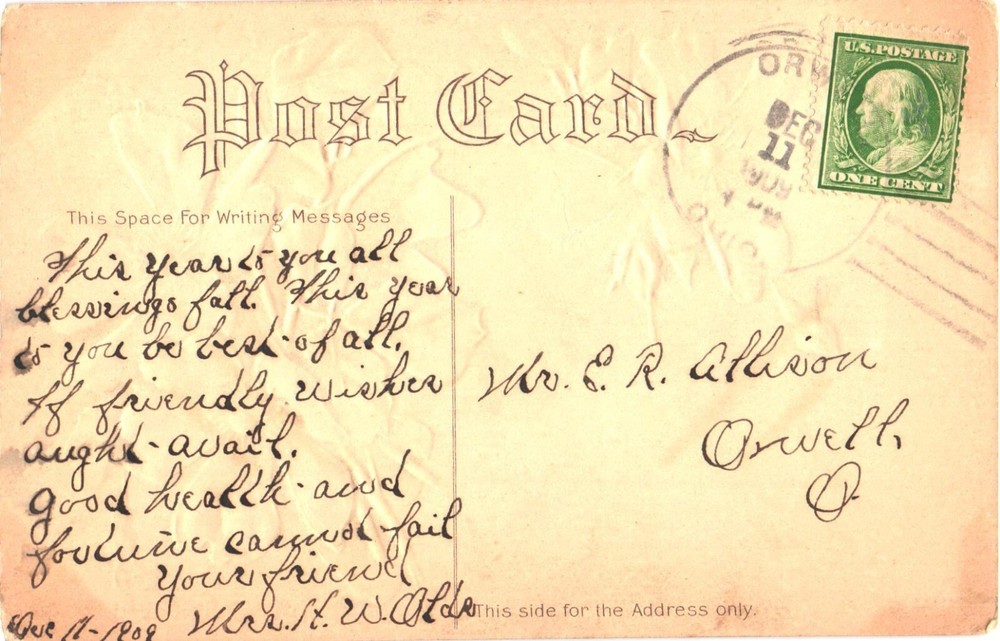 Post Card
ORW
DEC
11
1909
OHIO
U.S. POSTAGE
ONE CENT
This Space For Writing Messages
This year to you all
blessings fall. This year
to you be best of all.
If friendly wishes
aught avail.
good health and
fortune cannot fail
Your friend
Mrs. H. W. Olds
Dec 11-1909
Mr. E. R. Allison
Orwell,
O.
This side for the Address only.